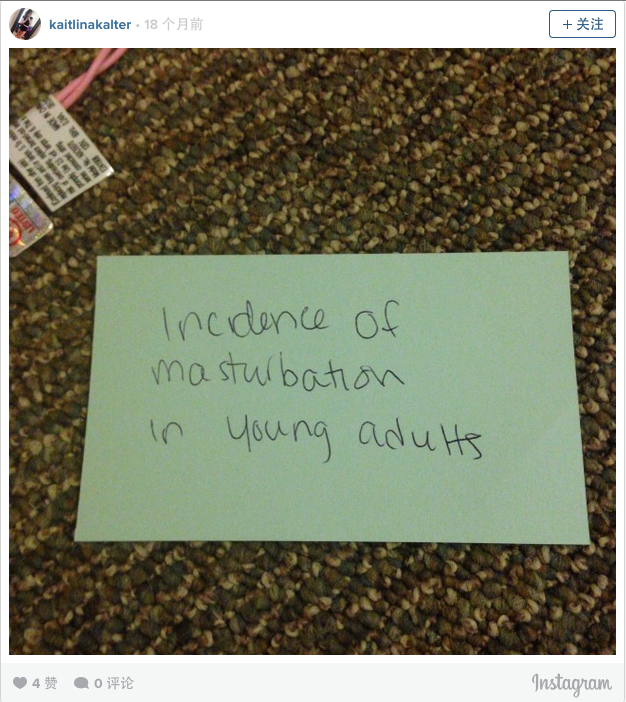 kaitlinakalter • 18 个月前
+ 关注
Incidence of
masturbation
in young adults
4 赞 0 评论
Instagram